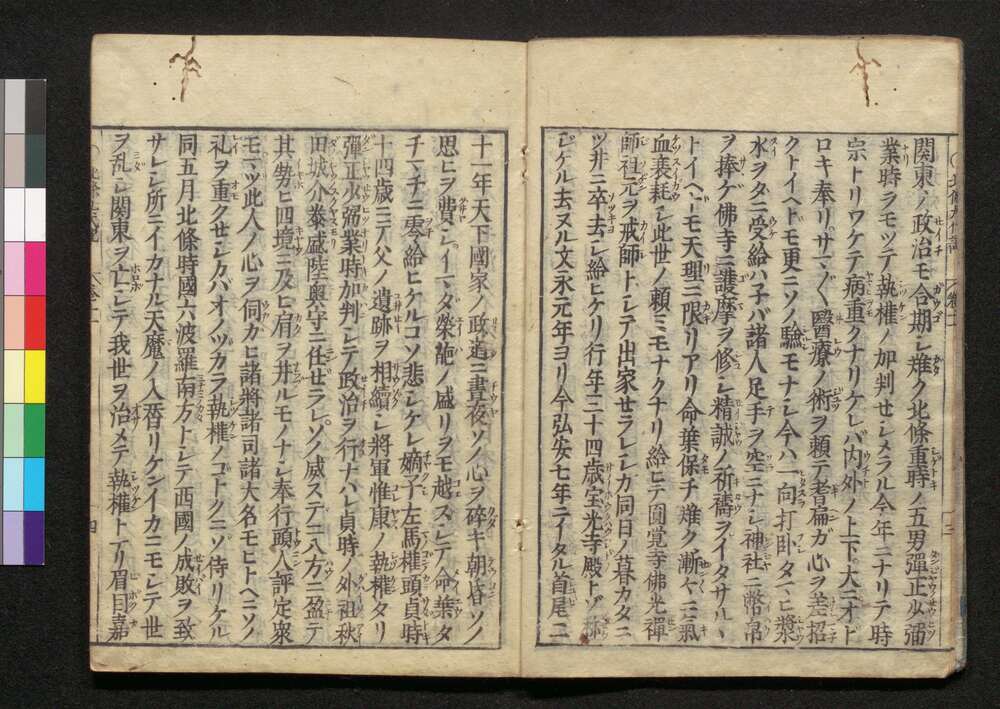 関東ノ政治モ合期シ難ク北條重時ノ五男彈正少弼
業時ヲモツテ執権ノ加判セシメラル今年ニナリテ時
宗トリワケテ病重クナリケレバ内外ノ上下大ニオド
ロキ奉リサマ〴〵醫療ノ術ヲ頼テ耆扁ガ心ヲ差招
クトイヘドモ更ニソノ驗モナシ今ハ一向打卧タマヒ漿
水ヲタニ受給ハ子バ諸人足手ヲ空ニナシ神社ニ幣帛
ヲ捧ゲ佛寺ニ護摩ヲ修シ精誠ノ祈禱ヲイタサルヽ
トイヘドモ天理ニ限リアリ命葉保チ難ク漸々ニ氣
血衰耗シ此世ノ頼ミモナクナリ給ヒテ圓覚寺佛光禪
師祖元ヲ戒師トシテ出家セラレシカ同日ノ暮カタニ
ツ井ニ卒去シ給ヒケリ行年三十四歳宝光寺殿トゾ称
シケル去ヌル文永元年ヨリ今弘安七年ニイタル首尾二
十一年天下國家ノ政道ニ晝夜ソノ心ヲ碎キ朝昏ソノ
思ヒヲ費シイマダ榮葩ノ盛リヲモ越ズシテ命葉タ
チマチニ零給ヒケルコソ悲シケレ嫡子左馬權頭貞時
十四歳ニテ父ノ遺跡ヲ相續シ將軍惟康ノ執権タリ
彈正少弼業時加判シテ政治ヲ行ナハル貞時ノ外祖秋
田城介泰盛陸奥守ニ任セラレソノ威スデニ八方ニ盈テ
其勢ヒ四境ニ及ヒ肩ヲ井ルモノナシ奉行頭人評定衆
モマツ此人ノ心ヲ伺カヒ諸將諸司諸大名モヒトヘニソノ
礼ヲ重クセシカバオノヅカラ執権ノゴトクニゾ侍リケル
同五月北條時國六波羅南方トシテ西國ノ成敗ヲ致
サレシ所ニイカナル天魔ノ入替リケンイカニモシテ世
ヲ乱シ関東ヲ亡シテ我世ヲ治メテ執權トナリ眉目嘉